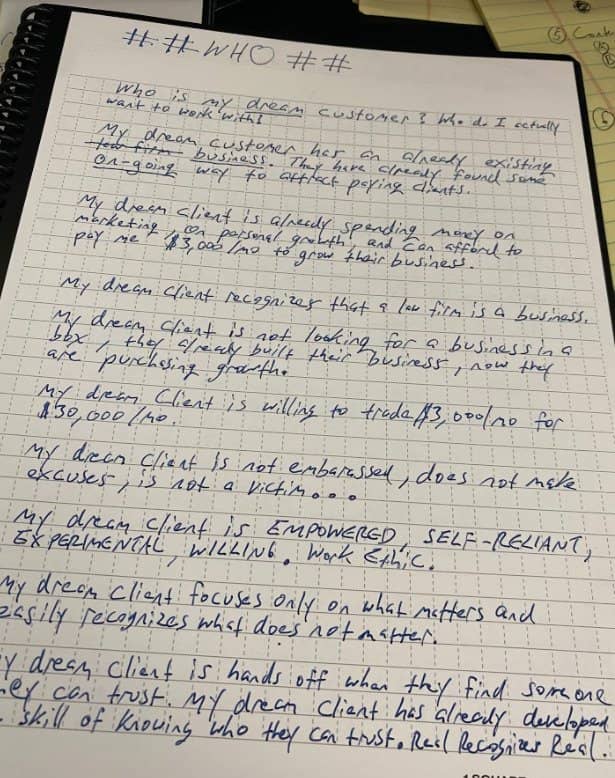 # # WHO # #
Who is my dream customer? Who do I actually
want to work with?
My dream customer has an already existing
law firm business. They have already found some
on-going way to attract paying clients.
My dream client is already spending money on
marketing, on personal growth, and can afford to
pay me $3,000/mo to grow their business.
My dream client recognizes that a law firm is a business.
My dream client is not looking for a business in a
box, they already built their business, now they
are purchasing growth.
My dream client is willing to trade $3,000/mo for
$30,000/mo.
My dream client is not embarassed, does not make
excuses, is not a victim...
My dream client is EMPOWERED, SELF-RELIANT,
EXPERIMENTAL, WILLING. Work Ethic.
My dream client focuses only on what matters and
easily recognizes what does not matter.
y dream client is hands off when they find someone
hey can trust. My dream client has already developed
skill of knowing who they can trust. Real Recognizes Real.
5
6